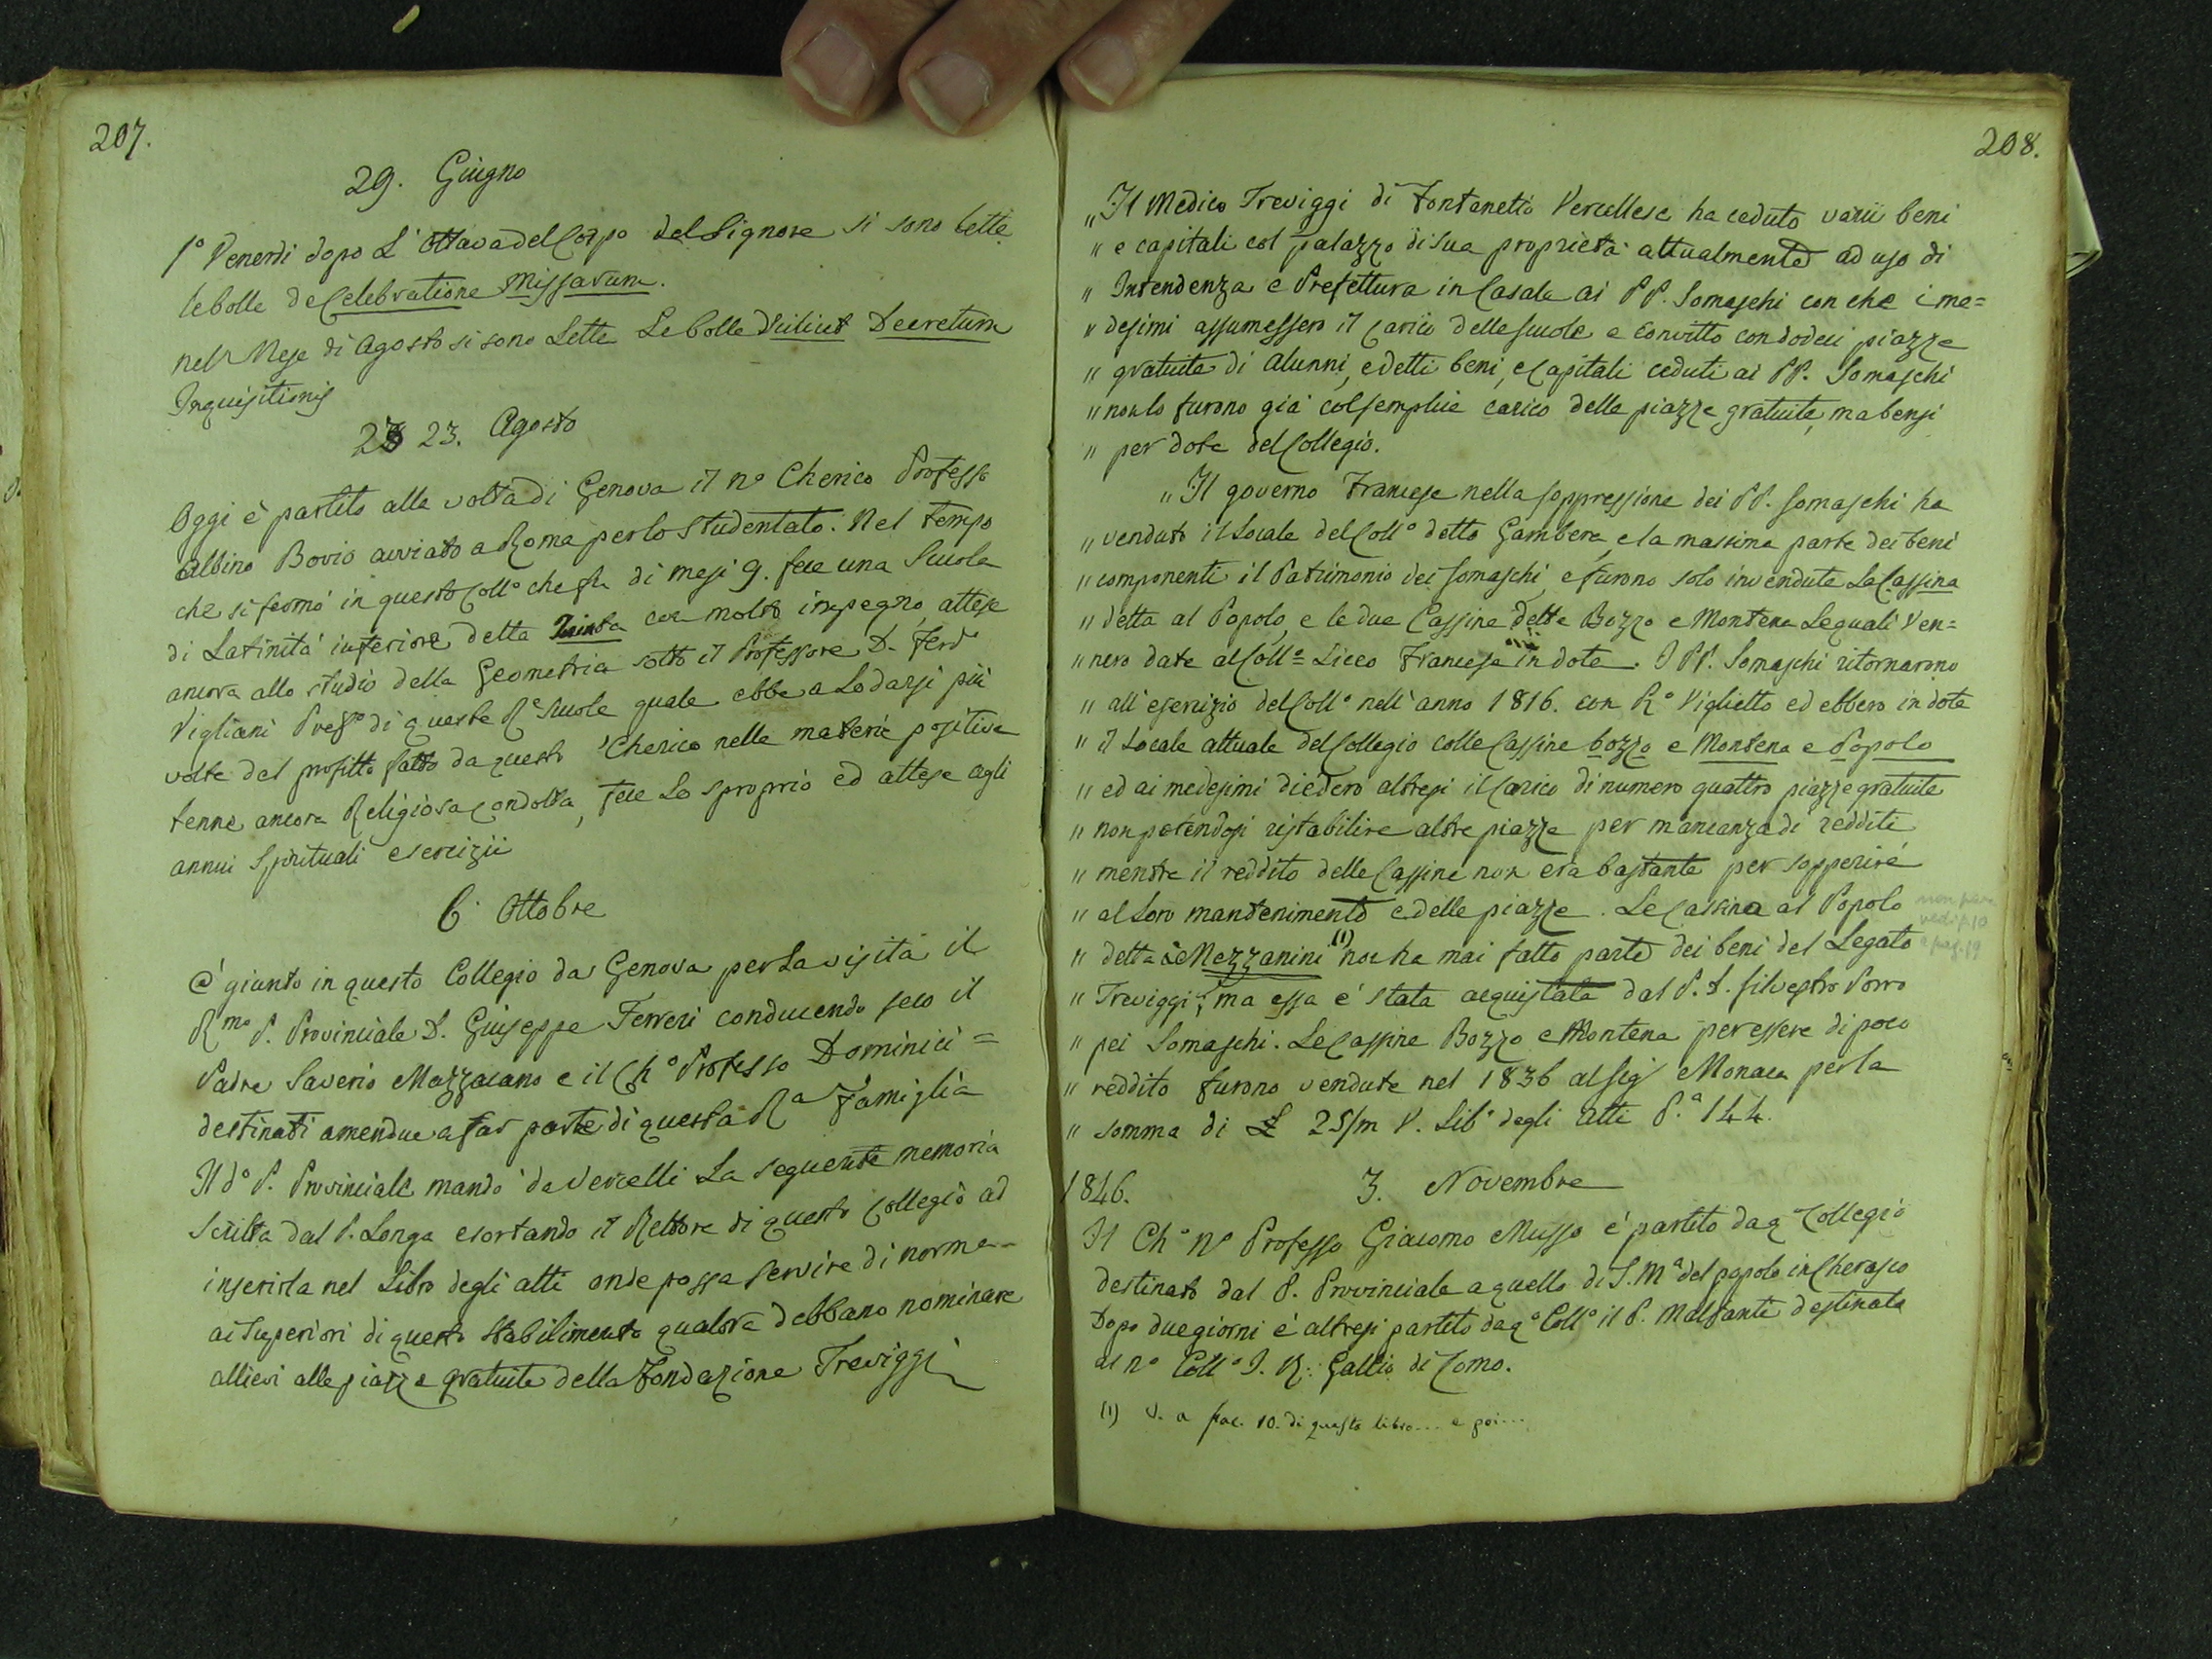 207.
29. Giugno
1° Venerdi dopo L'Ottava del Corpo del Signore si sono lette
le bolle de Celebratione Missarum.
nel Mese di Agosto si sono Lette Le bolle Decretum
Inquisitionis
23. Agosto
Oggi è partito alla volta di Genova il n° Cherico Professo
Albino Bovio avviato a Roma per lo studentato. Nel tempo
che si fermò in questo Coll° che fu di mesi 9. fece una Scuola
di Latinità inferiore detta con molto impegno, attese
ancora allo studio della Geometria sotto il Professore D. Ferd°
Vigliani Pref° di queste Re Scuole quale ebbe a Lodarsi più
volte del profitto fatto da questo Cherico nelle materie positive
tenne ancora Religiosa condotta, fece Lo sproprio ed attese agli
annui Spirituali esercizii
6. Ottobre
È giunto in questo Collegio da Genova per la visita il
Rmo P. Provinciale D. Giuseppe Ferreri conducendo seco il
Padre Saverio Mazzacano e il Ch° Professo Dominici =
destinati amendue a far parte di questa Ra Famiglia
Il d° P. Provinciale mandò da Vercelli La seguente memoria
scritta dal P. Longa esortando il Rettore di questo Collegio ad
inserirla nel Libro degli atti onde possa servire di norma
ai Superiori di questo Stabilimento qualora debbano nominare
allievi alle piazze gratuite della Fondazione Treviggi
208.
" Il Medico Treviggi di Fontanetto Vercellese ha ceduto varii beni
" e capitali col palazzo di sua proprietà attualmente ad uso di
" Intendenza e Prefettura in Casale ai PP. Somaschi con che i me=
" desimi assumessero il carico delle scuole e convitto con dodeci piazze
" gratuite di alunni, e detti beni, e capitali ceduti ai PP. Somaschi
" non lo furono già col semplice carico delle piazze gratuite, ma bensi
" per dote del Collegio.
" Il governo Francese nella soppressione dei PP. Somaschi ha
" venduto il Locale del Coll° detto Gambera, e la massima parte dei beni
" componenti il Patrimonio dei Somaschi, e furono solo invendute La Cassina
" detta al Popolo, e le due Cassine dette Bozzo e Montena Le quali Ven=
" nero date al Coll° = Liceo Francese in dote. I PP. Somaschi ritornarono
" all'esercizio del Coll° nell'anno 1816. con R° Viglietto ed ebbero in dote
" il Locale attuale del Collegio colle Cassine bozzo e Montena e Popolo
" ed ai medesimi diedero altresi il Carico di numero quattro piazze gratuite
" non potendosi ristabilire altre piazze per mancanza di redditi
" mentre il reddito delle Cassine non era bastante per sopperire
" al Loro mantenimento e delle piazze. Le Cassina al Popolo
" detta Mezzanini (1) non ha mai fatto parte dei beni del Legato
" Treviggi; ma essa è stata acquistata dal P. D. Silvestro Porro
" pei Somaschi. Le Cassine Bozzo e Montena per essere di poco
" reddito furono vendute nel 1836 al Sig Monaca per la
" somma di £ 25/m V. Lib° degli atti P.a 144.
1846. 3. Novembre
Il Ch° n° Professo Giacomo Musso è partito da q° Collegio
destinato dal P. Provinciale a quello di S. Ma del popolo in Cherasco
Dopo due giorni è altresi partito da q° Coll° il P. Malfante destinato
al n° Coll° I. R. Gallio di Como.
(1) V. a fac. 10. di questo libro... e poi...